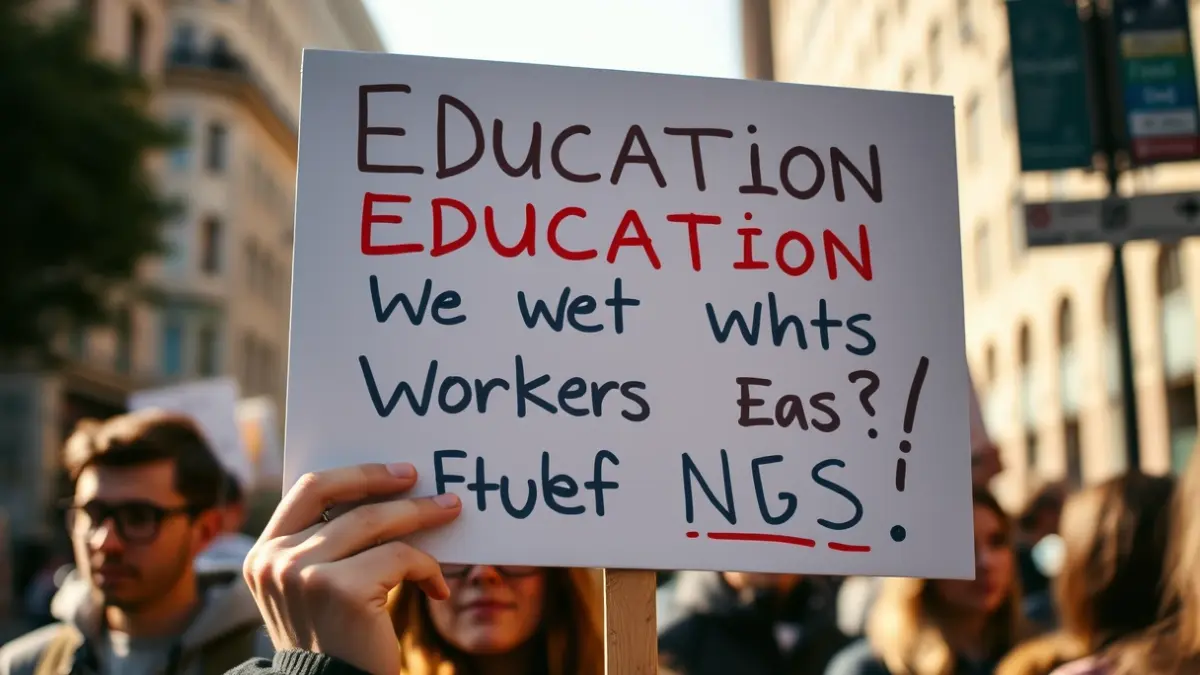 EDUCATION
EDUCATION
We wet Whts
Workers Eas?!
Etuef NGS!